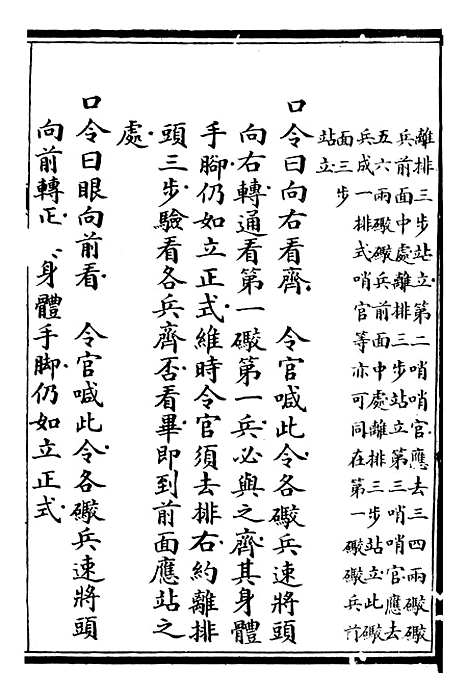 離排三步站立第二哨哨官應去三四兩礮礮
兵前面中處離排三步站立第三哨哨官應去
五六兩礮礮兵前面中處離排三步站立此礮
兵成一排式哨官等亦可同在第一礮礮兵前
面三步
站立
口令曰向右看齊　令官喊此令各礮兵速將頭
向右轉通看第一礮第一兵必與之齊其身體
手腳仍如立正式維時令官須去排右約離排
頭三步驗看各兵齊否看畢即到前面應站之
處
口令曰眼向前看　令官喊此令各礮兵速將頭
向前轉正身體手腳仍如立正式